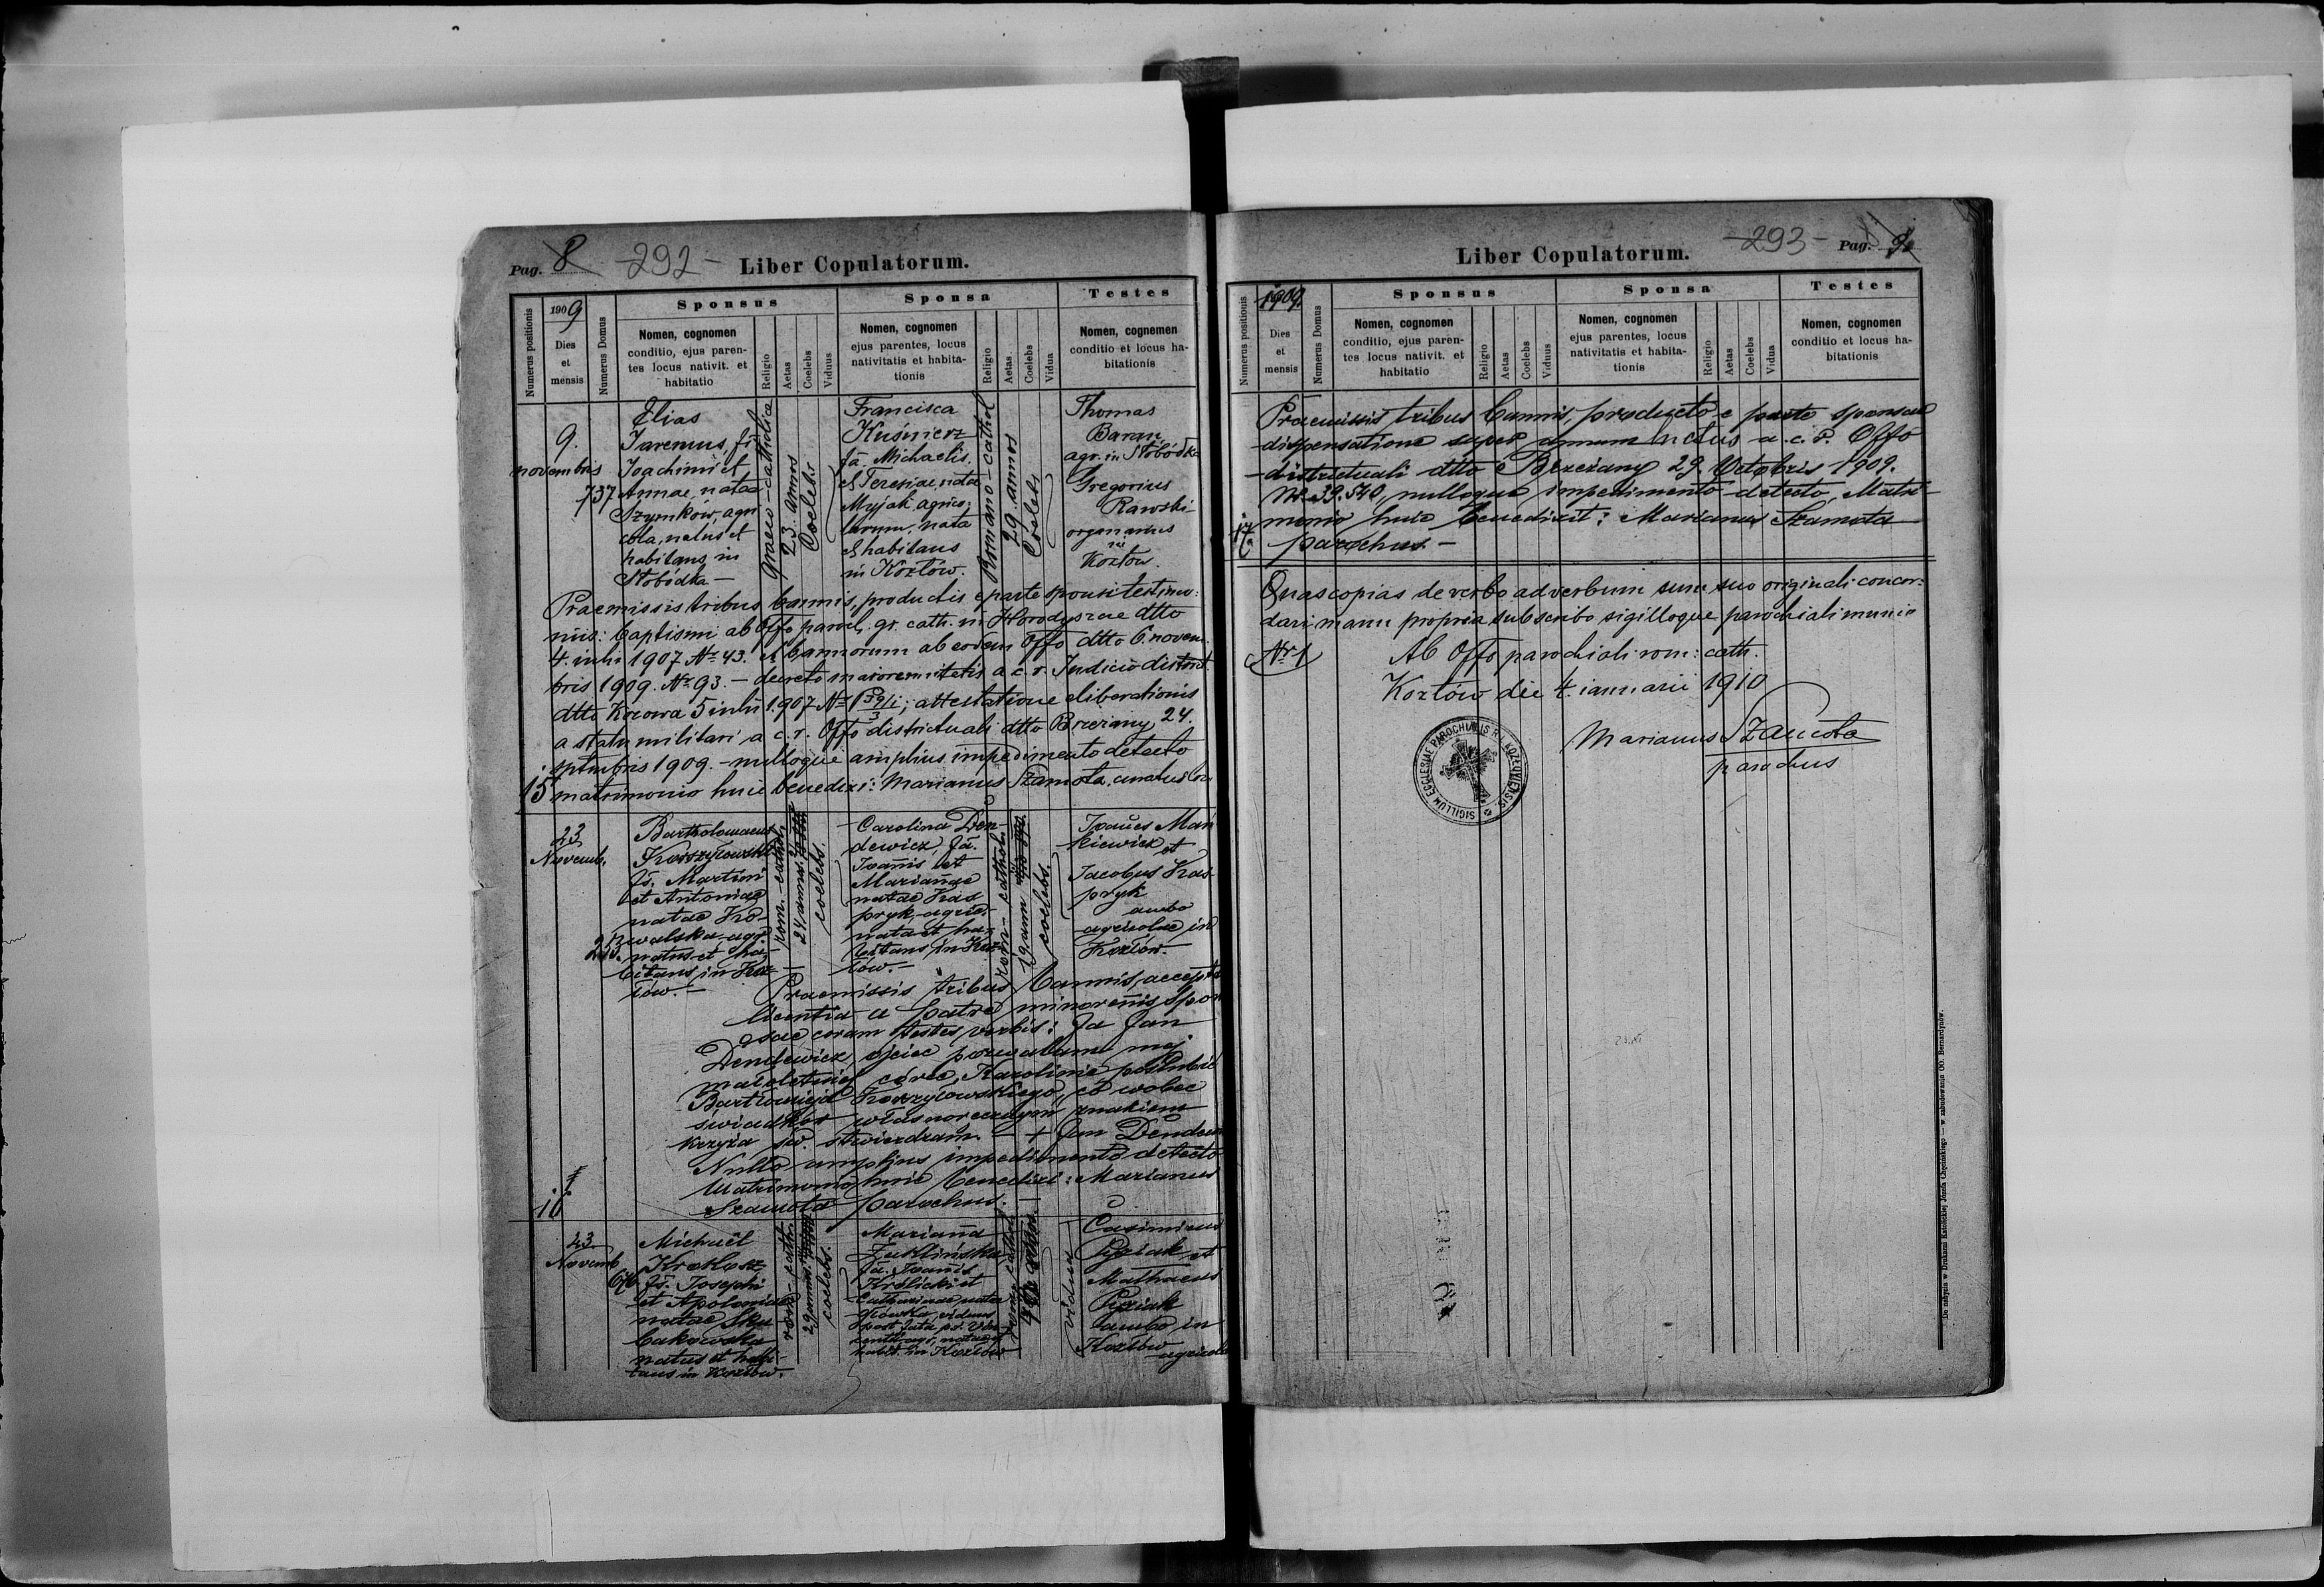 Pag. 8 -292- Liber Copulatorum.
Numerus positionis
1909
Dies
et
mensis
Numerus Domus
Sponsus
Nomen, cognomen
conditio, ejus paren-
tes locus nativit. et
habitatio
Religio
Aetas
Coelebs
Viduus
Sponsa
Nomen, cognomen
ejus parentes, locus
nativitatis et habita-
tionis
Religio
Aetas
Coelebs
Vidua
Testes
Nomen, cognemen
conditio et locus ha-
bitationis
9.
novembris
737
Elias
Jaremus, fi
Joachimi et
Annae, natae
Szymków, agri
cola, natus et
habitans in
Słobódka -
Graeco-catholica
23. annos
Coelebs
Francisca
Kuśnierz
fa. Michaelis
et Teresiae, nata
Myjak, agrico
larum, nata
et habitans
in Kozłów.
Romano-cathol
29. annos
Coelebs
Thomas
Baran
agr. in Słobódka
Gregorius
Rawski
organarius
in
Kozłow.
Praemissis tribus bannis, productis e parte sponsi testimo:
niis: baptismi ab Offo paroch. gr. cath. in Horodyszcze dtto
4. iulii 1907 Nr 43. et bannorum ab eodem Offo dtto 6. novem
bris 1909. Nr 93. - decreto maiorennitatis a c. r. Judicio district.
dtto Kozowa 5 iulii 1907 Nr ; attestatione liberationis
a statu militari a c. r. Offo districtuali dtto Brzeżany 24.
septmbris 1909. - nulloque amplius impedimento detecto
15 matrimonio huic benedixi: Marianus Szamota,
23
Novemb.
253.
Bartholomaeus
Korzyłowski
fs. Martini
et Antoniae
natae Ko-
walska agr.
natus et ha-
bitans in Koz-
łów. -
rom.-cathol.
24 annos
coelebs.
Carolina Den-
dewicz, fa.
Joannis et
Mariannae
natae Kas
pryk agric.
nata et ha-
bitans in Koz
łów. -
rom-cathol.
coelebs.
Joannes Mań
kiewicz et
Jacobus Kas
pryk
ambo
agricolae in
Kozłow.
Praemissis tribus bannis, accepta
licentia a patre minorennis spon
sae coram testes verbis: Ja Jan
Dendewicz ojciec pozwalam mej
małoletniej córce Karolinie poślubić
Bartłomieja Korzyłowskiego, co wobec
świadków własnoręcznym znakiem
krzyża św. stwierdzam. - + Jan Dendew
Nullo amplius impedimento detecto
Matrimonio huic benedixi: Marianus
Szamota parochus. -
16
23
Novemb
676
Michaël
Krotosz
fs. Josephi
et Apoloniae
natae Sku
bakowska
natus et habi-
tans in Kozłów.
rom. cathol.
29 annos
coelebs.
Marianna
Żuklińska
fa. Joannis
Królicki et
Catharinae, nata
vidua
post fata
nata et
habit. in Kozłów
vidua
Casimirus
Pyziak et
Mathaeus
Pyziak
ambo in
Kozłów
agricolae
Liber Copulatorum. -293- Pag. 9
Numerus positionis
1909.
Dies
et
mensis
Numerus Domus
Sponsus
Nomen, cognomen
conditio, ejus paren-
tes locus nativit. et
habitatio
Religio
Aetas
Coelebs
Viduus
Sponsa
Nomen, cognomen
ejus parentes, locus
nativitatis et habita-
tionis
Religio
Aetas
Coelebs
Vidua
Testes
Nomen, cognomen
conditio et locus ha-
bitationis
Praemissis tribus bannis, producto e parte sponsae
dispensatione super annum luctus a c. r. Offo
districtuali dtto Brzeżany 29. Octobris 1909.
Nr 39.540, nulloque impedimento detecto, Matri-
monio huic benedixit: Marianus Szamota
17 parochus. -
Quas copias de verbo ad verbum cum suo originali concor:
dari manu propria subscribo sigilloque parochiali munio
Nr 1
Ab Offo parochiali rom: cath.
Kozłów die 4. ianuarii 1910
Marianus Szamota
parochus
SIGILLUM ECCLESIAE PAROCHIALIS R. L. KOZLOVIENSIS
Do nabycia w Drukarni Katolickiej Józefa Chęcińskiego — w zabudowaniu OO. Bernardynów.